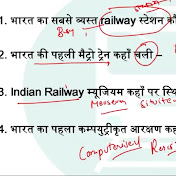 1. भारत का सबसे व्यस्त railway स्टेशन कौ
Busy
2. भारत की पहली मैट्रो ट्रेन कहाँ चली –
3. Indian Railway म्यूजियम कहाँ पर स्थि
Museum situated
4. भारत का पहला कम्पयुटरीकृत आरक्षण कह
Computerised